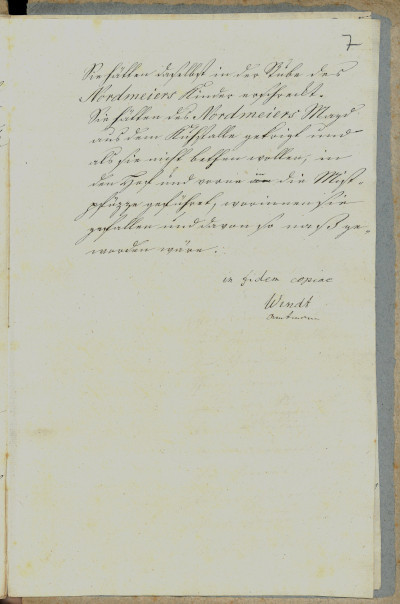 7
Sie hätten daselbst in der Stube des
Nordmeiers Kinder erschreckt.
Sie hätten des Nordmeiers Magd
aus dem Kuhstalle gekrigt und
als sie nicht bethen wollen, in
den Hof und vorne in die Mist-
pfüzze geführet, worinnen sie
gefallen und davon so naß ge-
worden wäre.
in fidem copiae
Wendt
Amtmann